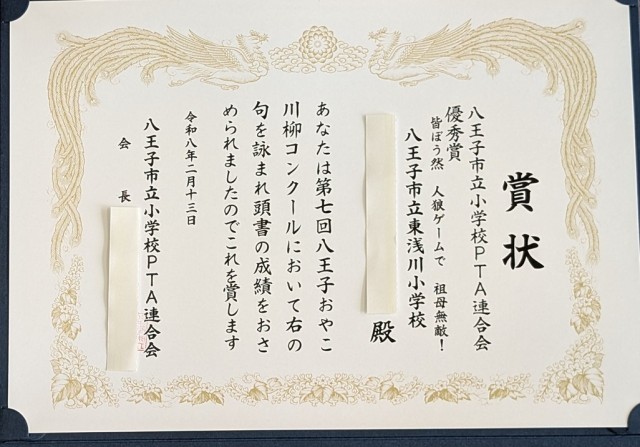 賞状
八王子市立小学校PTA連合会
優秀賞
皆ぼう然 人狼ゲームで 祖母無敵!
八王子市立東浅川小学校
殿
あなたは第七回八王子おやこ
川柳コンクールにおいて右の
句を詠まれ頭書の成績をおさ
められましたのでこれを賞します
令和八年二月十三日
八王子市立小学校PTA連合会
会長